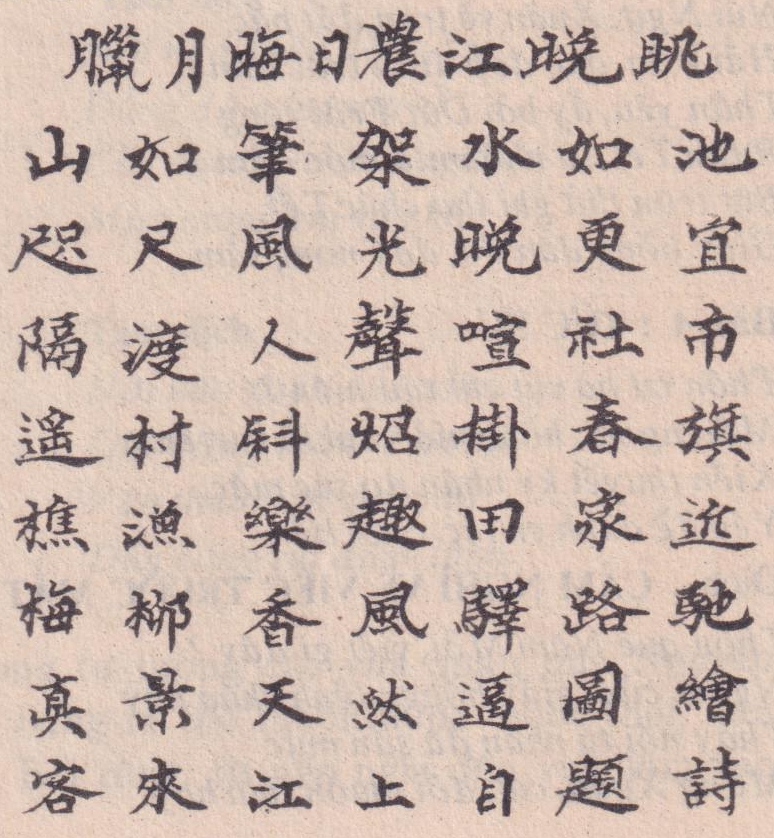 臘月晦日農江晚眺
山如筆架水如池
咫尺風光晚更宜
隔渡人聲喧社市
遙村斜炤掛春旗
樵漁樂趣田家近
梅柳香風驛路馳
真景天然逼圖繪
客來江上自題詩